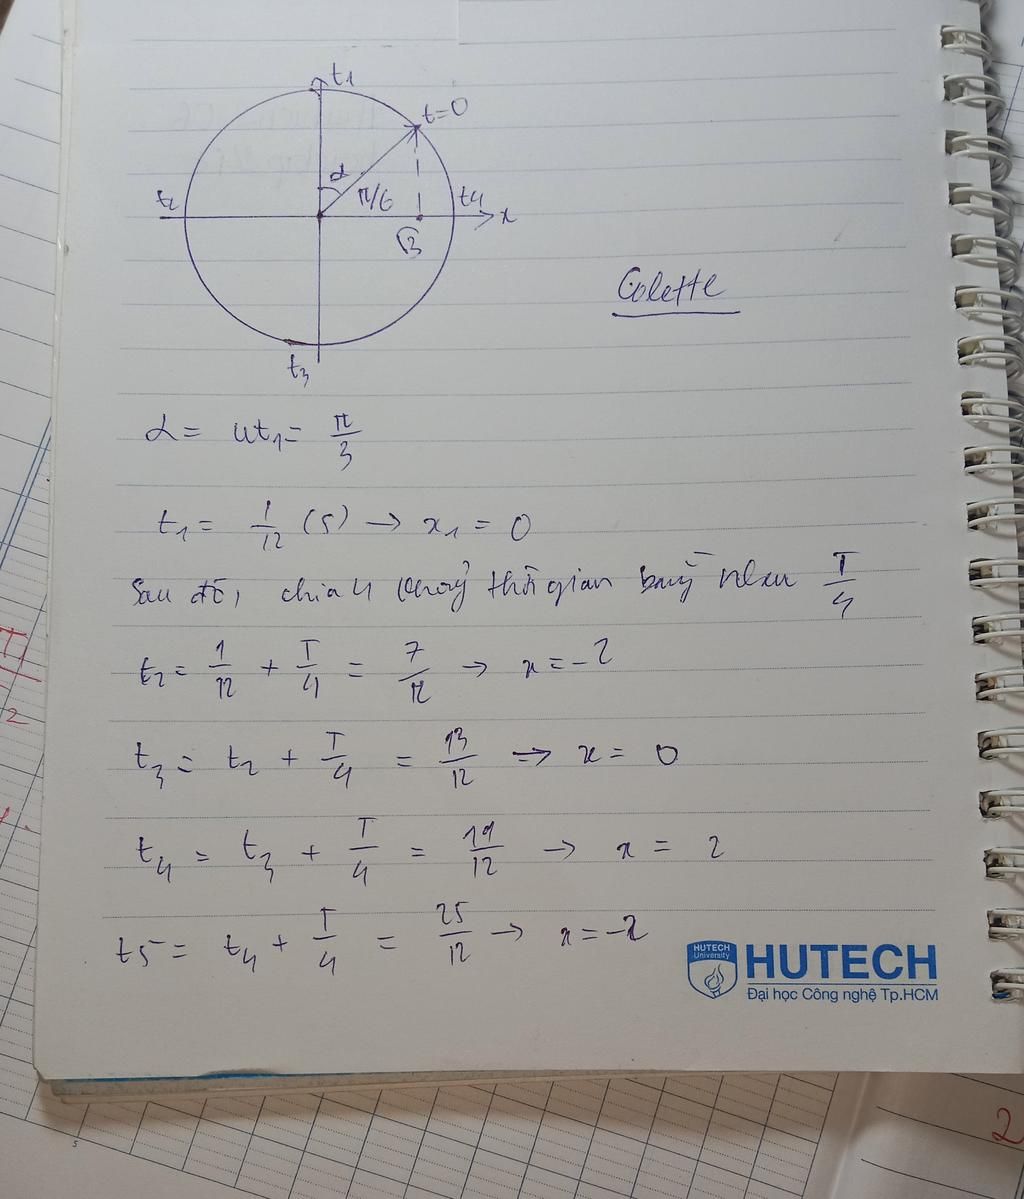 t₁
t=0
α
π/6
t₂
t₄
x
√3
t₃
Colette
α = ωt₁ = π/3
t₁ = 1/12 (s) → x₁ = 0
Sau đó, chia 4 khoảng thời gian bằng nhau T/4
t₂ = 1/12 + T/4 = 7/12 → x = -2
t₃ = t₂ + T/4 = 13/12 → x = 0
t₄ = t₃ + T/4 = 19/12 → x = 2
t5 = t₄ + T/4 = 25/12 → x = -2
HUTECH
University
HUTECH
Đại học Công nghệ Tp.HCM
2
5
2